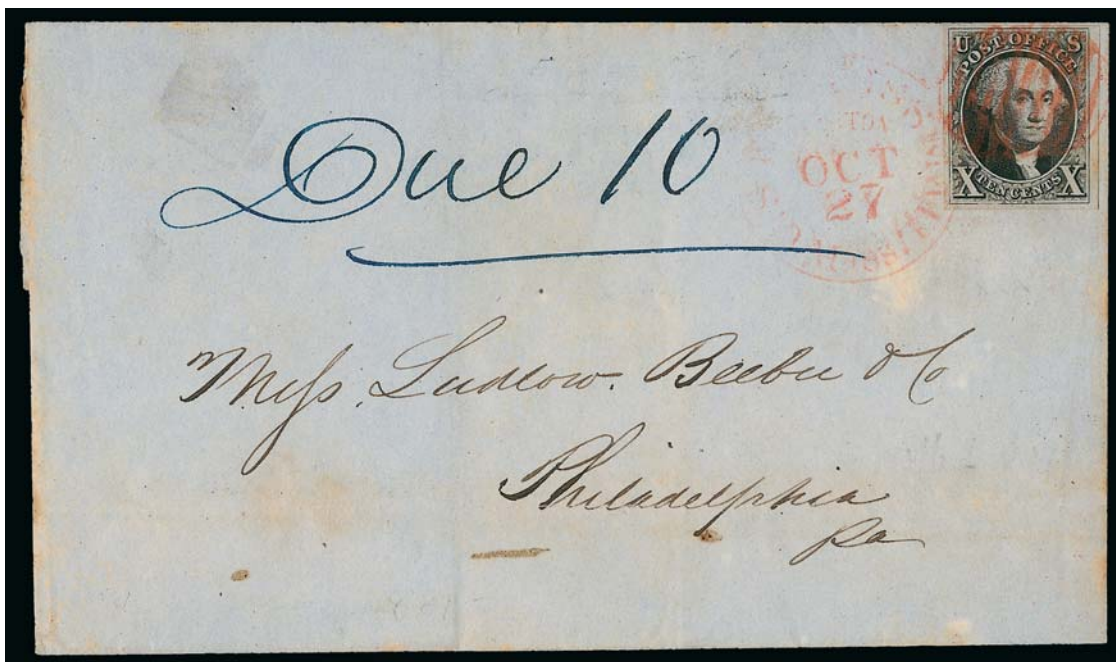 U S
POST OFFICE
X TEN CENTS X
OCT
27
Due 10
Mess. Ludlow. Beebee & Co
Philadelphia
Pa